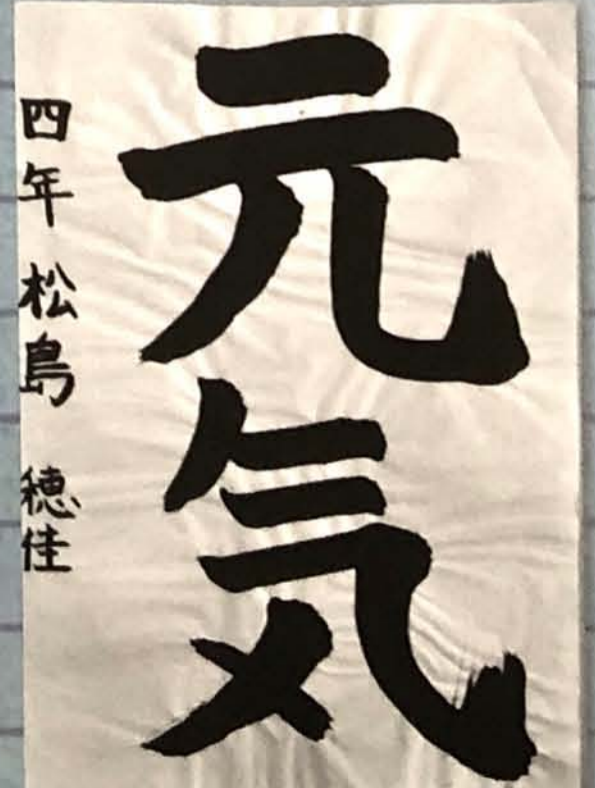 元気
四年 松島 穂佳